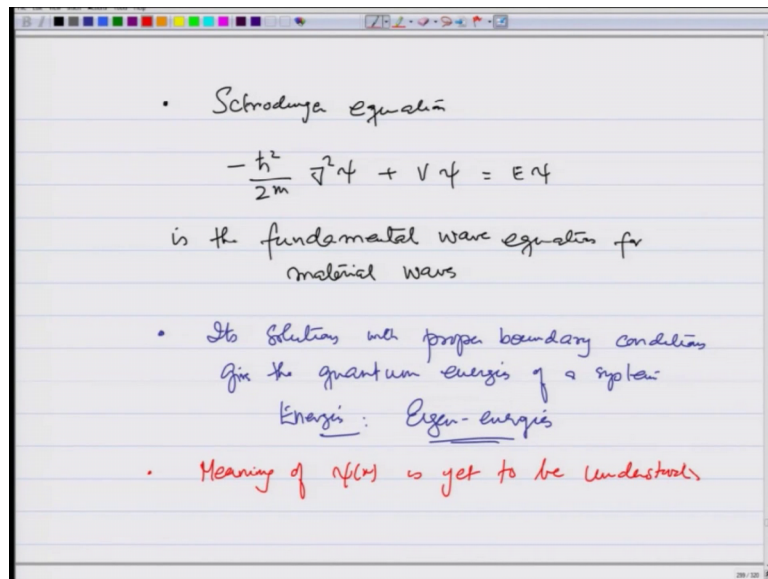 • Schrodinger equation
-ħ²/2m ∇²ψ + Vψ = Eψ
is the fundamental wave equation for
material waves
• Its solutions with proper boundary conditions
give the quantum energies of a system
Energies : Eigen-energies
• Meaning of ψ(x) is yet to be understood
299 / 320